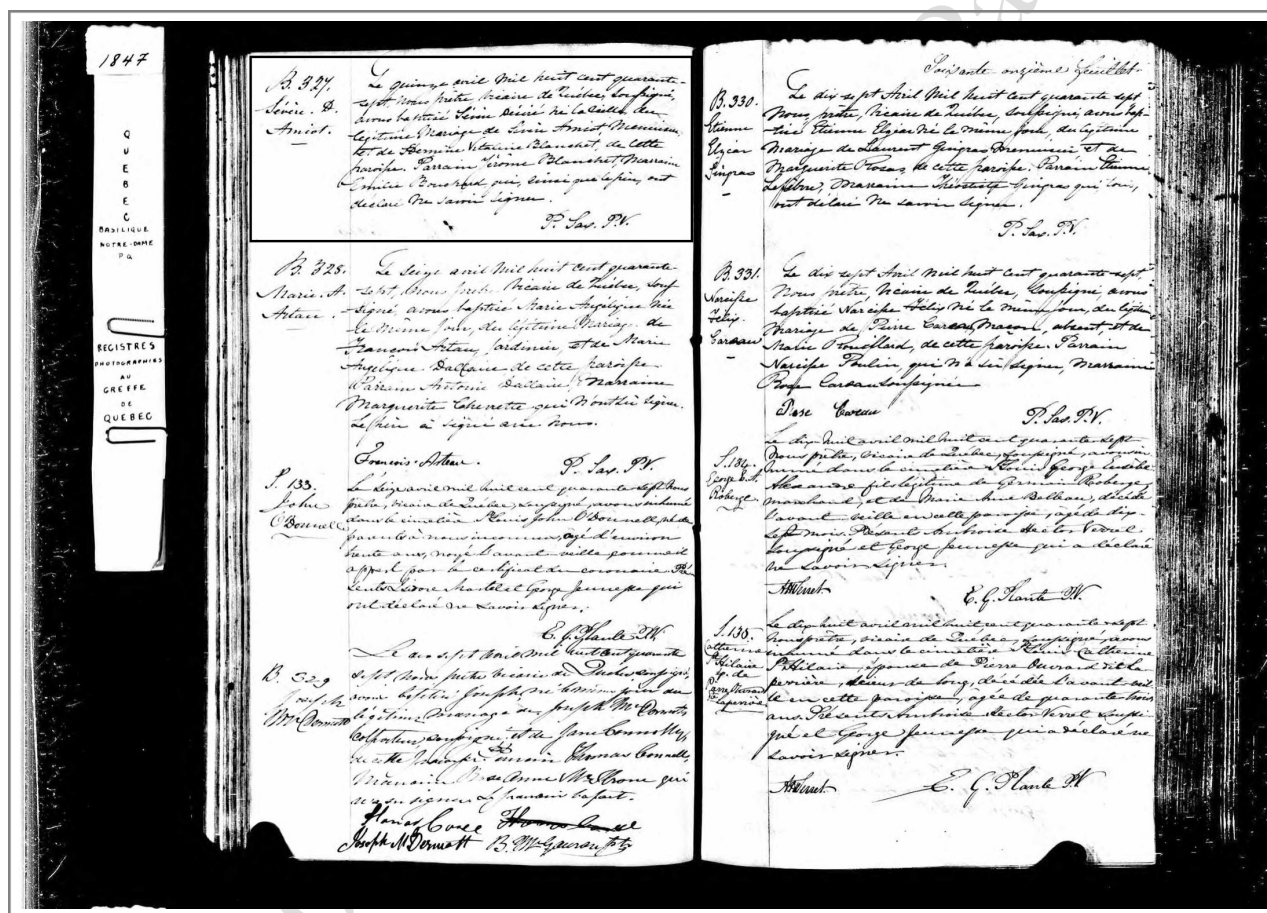 1847
QUEBEC
BASILIQUE
NOTRE-DAME
P Q
REGISTRES
PHOTOGRAPHIÉS
AU
GREFFE
DE
QUEBEC
B. 327.
Sévère. D.
Amiot.
Le quinze avril mil huit cent quarante-
sept, Nous prêtre, vicaire de Québec, soussigné,
avons baptisé Sévère Désiré né la veille du
légitime Mariage de Sévère Amiot, Menuisier,
et de Hermine Vitaline Blanchet, de cette
paroisse. Parrain Jérôme Blanchet, Marraine
Emilie Bouchard qui, ainsi que le père, ont
déclaré ne savoir signer.
P. Sax. P.V.
B. 328.
Marie. A.
Artau.
Le seize avril mil huit cent quarante-
sept, Nous prêtre, Vicaire de Québec, sous-
signé, avons baptisé Marie Angélique née
le même jour, du légitime Mariage de
François Artau, Jardinier, et de Marie
Angelique Dallaire de cette paroisse.
Parrain Antoine Dallaire, Marraine
Marguerite Chevrette qui n'ont su signer.
Le père a signé avec nous.
François Arteau.
P. Sax. P.V.
S. 133.
John
O'Donnelle
Le seize avril mil huit cent quarante sept Nous
prêtre, vicaire de Québec, soussigné, avons inhumé
dans le cimetière St Louis John O'Donnell, né de
parents à nous inconnus, agé d'environ
trente ans, noyé l'avant veille comme il
appert par le certificat du coronaire. Pré-
sents Martel et George Jeunesse qui
ont déclaré ne savoir signer.
E. G. Plante P.V.
B. 329
Joseph
McDermott
Le dix sept avril mil huit cent quarante
sept, Nous prêtre vicaire de Québec soussigné,
avons baptisé Joseph né le même jour du
légitime mariage de Joseph McDermott,
colporteur, soussigné et de Jane Connolly,
de cette paroisse. Parrain Thomas
Marraine Anne McKrone qui
n'a su signer. Le parrain
Joseph McDermott B. McGauran Ptr
Soixante onzième feuillet.
B. 330.
Etienne
Elzéar
Gingras
Le dix sept Avril Mil huit Cent quarante sept
Nous prêtre, Vicaire de Québec, soussigné, avons bap-
-tisé Etienne Elzéar né le même jour, du légitime
Mariage de Laurent Gingras Menuisier et de
Marguerite Rosas, de cette paroisse. Parrain Etienne
Lefebvre, Marraine Théotiste Gingras qui tous,
ont déclaré ne savoir signer.
P. Sax. P.V.
B. 331.
Narcisse
Félix
Careau
Le dix sept Avril Mil huit Cent quarante sept
Nous prêtre Vicaire de Québec, soussigné, avons
baptisé Narcisse Félix né le même jour, du légitime
Mariage de Pierre Careau, Maçon, absent et de
Marie Rouillard, de cette paroisse. Parrain
Narcisse Poulin qui n'a su signer, Marraine
Rose Careau soussignée
Rose Careau
P. Sax. P.V.
S. 134.
George E. A.
Roberge.
Le dix huit avril mil huit cent quarante sept
Nous prêtre, vicaire de Québec, soussigné, avons in-
humé dans le cimetière St Louis, George Eusèbe
Alexandre fils légitime de Germain Roberge,
marchand, et de Marie Anne Balleau, décédé
l'avant veille en cette paroisse, agé de dix
sept mois. Présents Ambroise Hector Verret
soussigné et George Jeunesse qui a déclaré
ne savoir signer.
AHVerret
E. G. Plante P.V.
S. 135.
Catherine
St Hilaire
ép. de
Pierre Ouvrard
dit Laperrière
Le dix huit avril mil huit cent quarante sept
Nous prêtre, vicaire de Québec, soussigné, avons
inhumé dans le cimetière St Louis, Catherine
St Hilaire, épouse de Pierre Ouvrard dit La
perrière, scieur de long, décédée l'avant veil-
le en cette paroisse, agée de quarante trois
ans. Présents Ambroise Hector Verret soussi-
gné et George Jeunesse qui a déclaré ne
savoir signer.
AHVerret
E. G. Plante P.V.